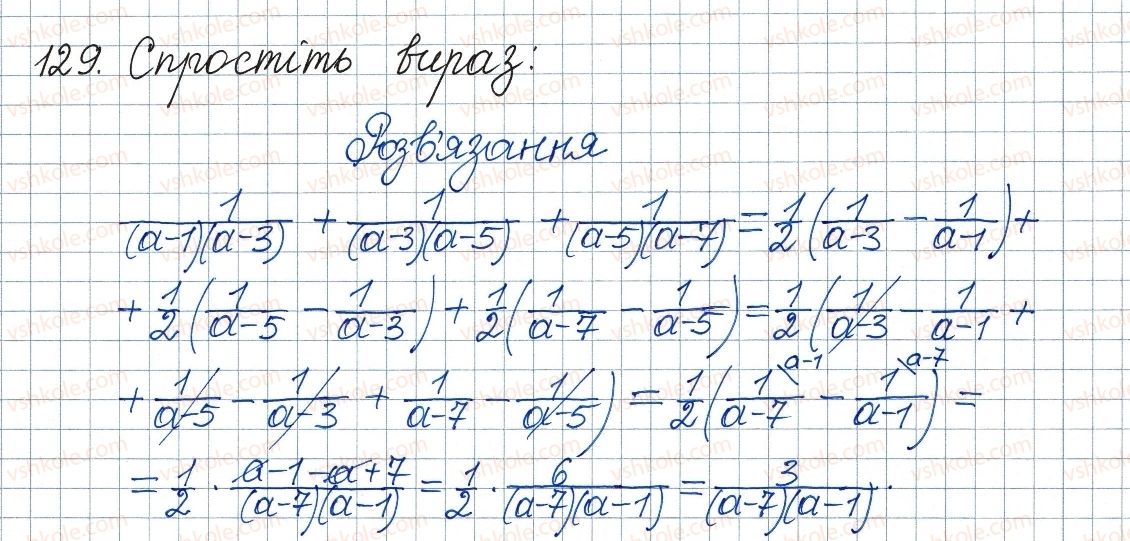 129. Спростіть вираз:
Розв'язання
1/((a-1)(a-3)) + 1/((a-3)(a-5)) + 1/((a-5)(a-7)) = 1/2(1/(a-3) - 1/(a-1)) +
+ 1/2(1/(a-5) - 1/(a-3)) + 1/2(1/(a-7) - 1/(a-5)) = 1/2(1/(a-3) - 1/(a-1) +
+ 1/(a-5) - 1/(a-3) + 1/(a-7) - 1/(a-5)) = 1/2(1/(a-7) \a-1 - 1/(a-1) \a-7) =
= 1/2 · (a-1-a+7)/((a-7)(a-1)) = 1/2 · 6/((a-7)(a-1)) = 3/((a-7)(a-1)).